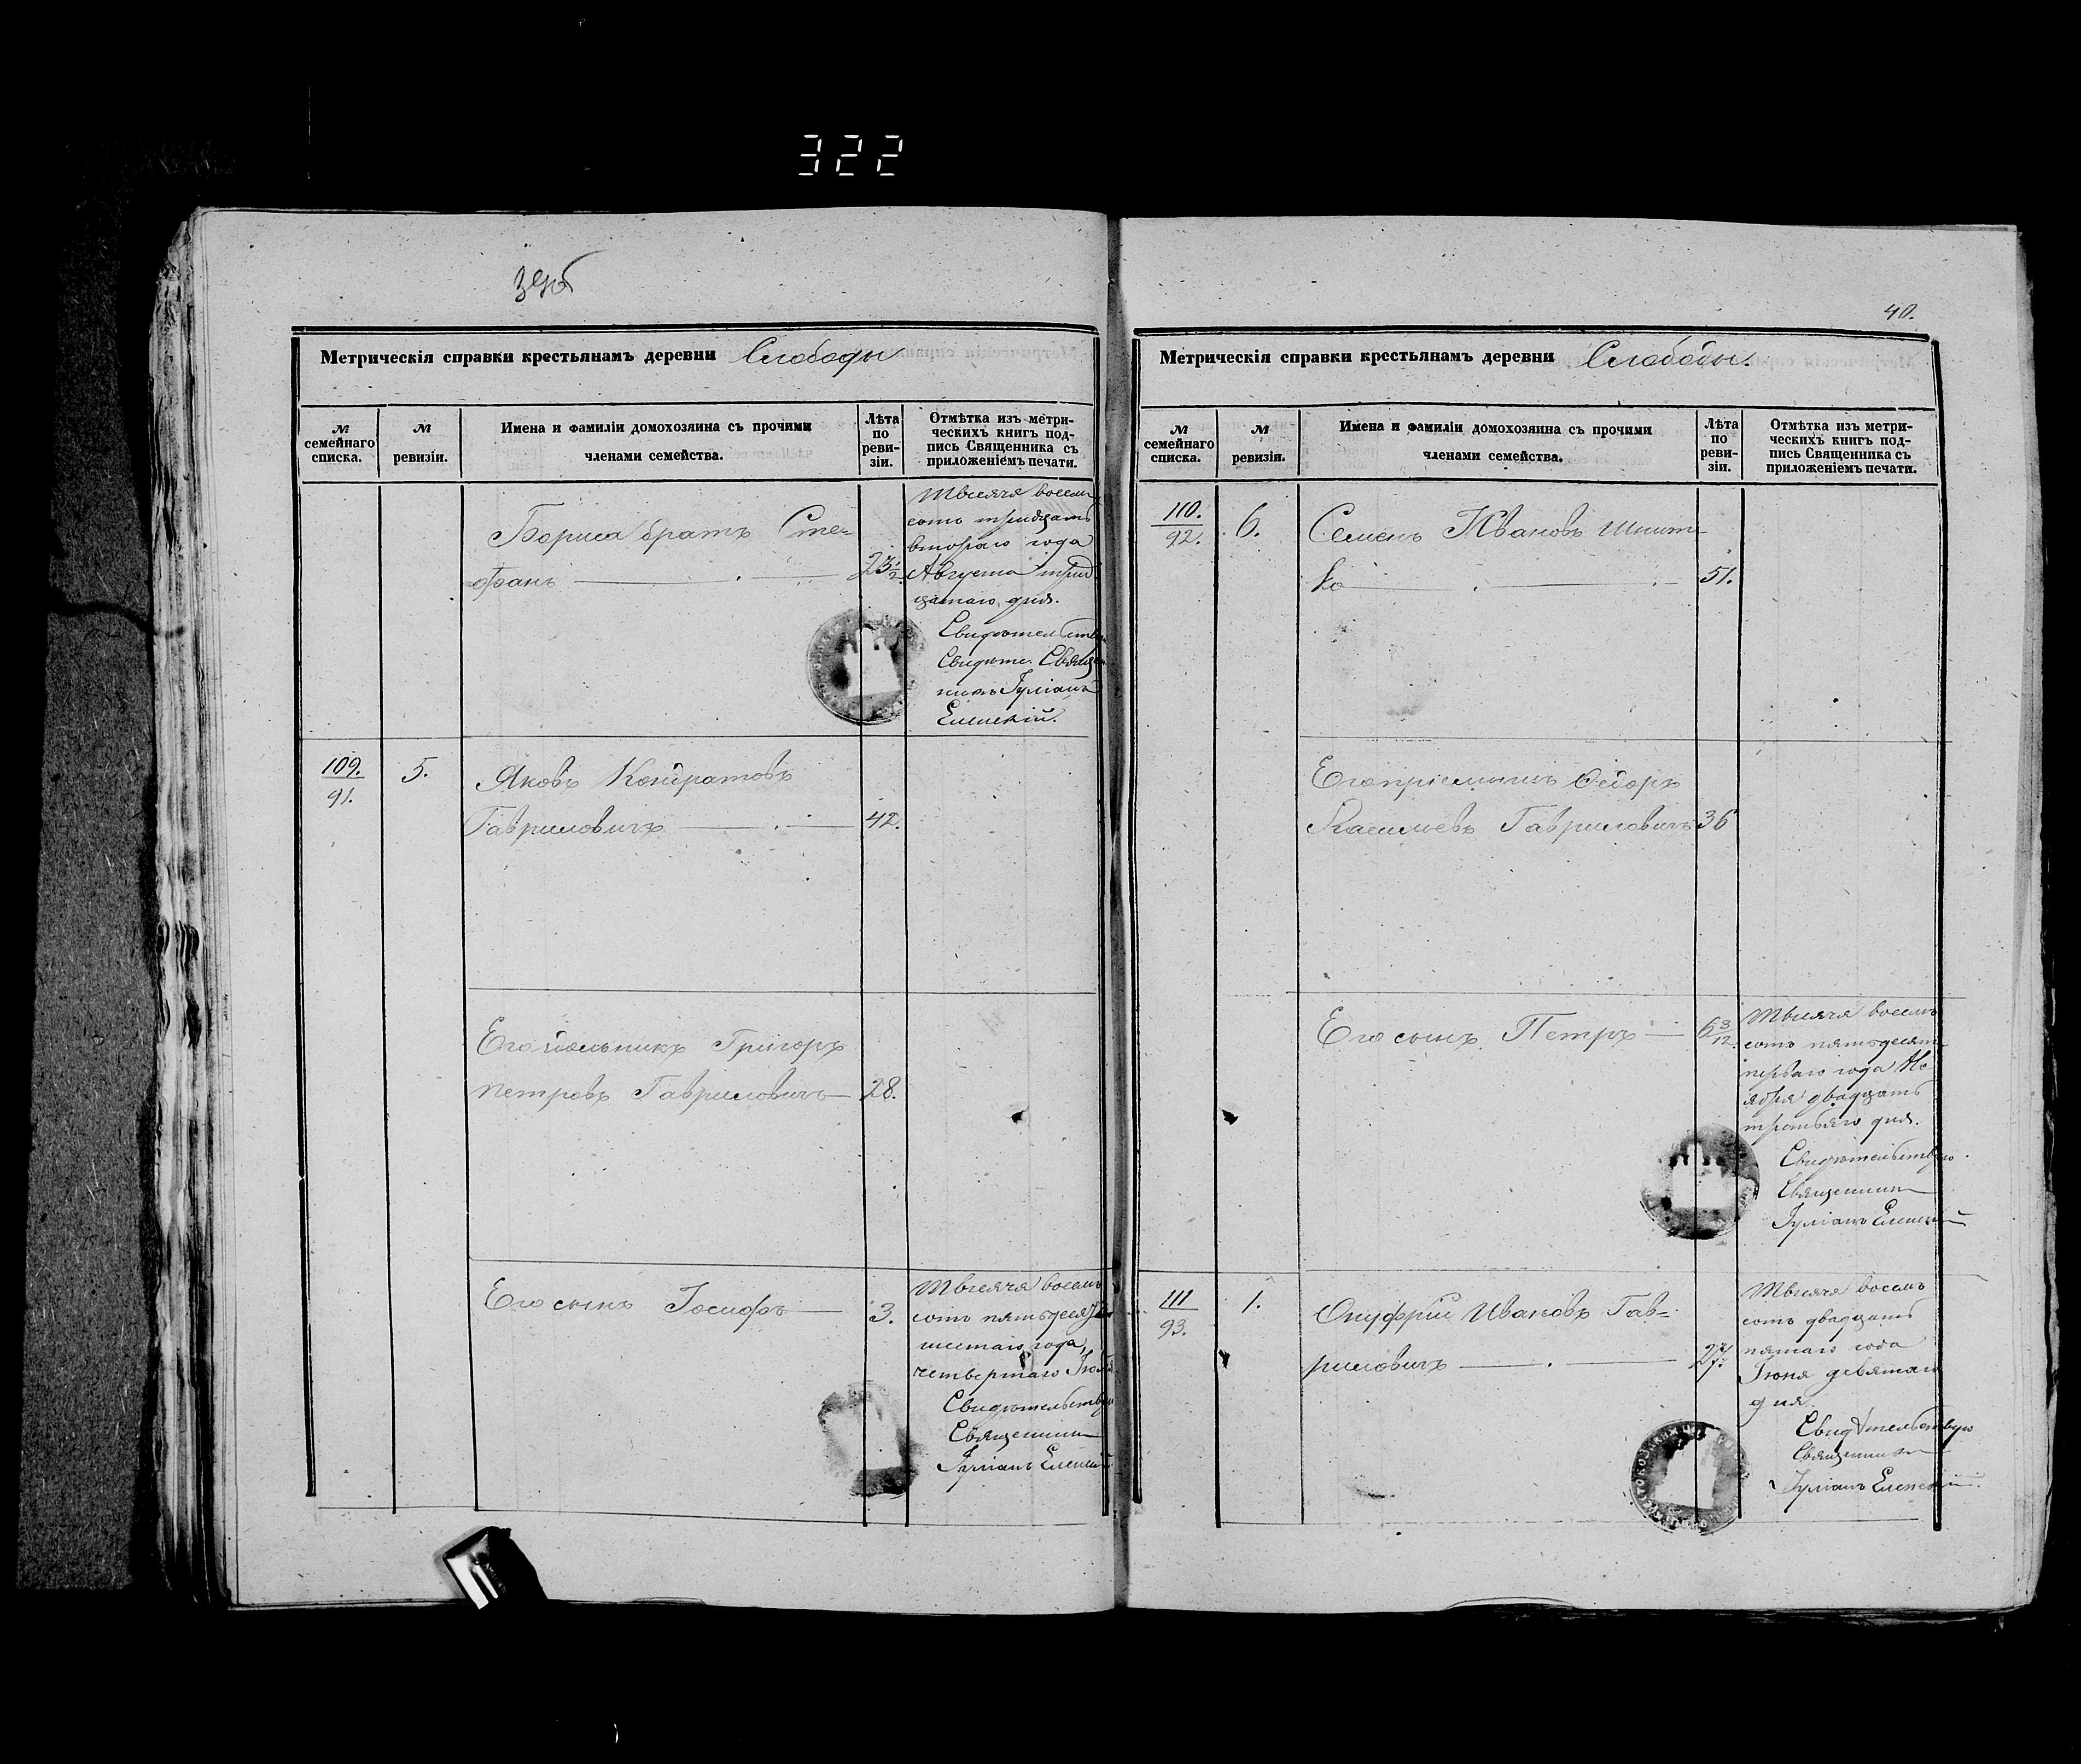 322
39об
Метрическія справки крестьянамъ деревни Слободы
№ семейнаго списка.
№ ревизіи.
Имена и фамиліи домохозяина съ прочими членами семейства.
Лѣта по ревизіи.
Отмѣтка изъ метри-
ческихъ книгъ под-
пись Священника съ
приложеніемъ печати.
Бориса братъ Сте-
фанъ 23½
Тысяча восемь
сотъ тридцать
втораго года
Августа трид-
цатаго дня.
Свидѣтельству
Свидѣте. Священ
никъ Іуліанъ
Еленскій.
109.
91.
5.
Яковъ Кондратовъ
Гавриловичъ 42.
Его Григоръ
Петровъ Гавриловичъ 28.
Его сынъ Іосифъ 3.
Тысяча восемь
сотъ пятьдесятъ
шестаго года,
четвертаго
Свидѣтельству
Священникъ
Іуліанъ Еленскій
40.
Метрическія справки крестьянамъ деревни Слободы.
№ семейнаго списка.
№ ревизіи.
Имена и фамиліи домохозяина съ прочими членами семейства.
Лѣта по ревизіи.
Отмѣтка изъ метри-
ческихъ книгъ под-
пись Священника съ
приложеніемъ печати.
110.
92.
6.
Семенъ Ивановъ Шпит-
ко 51.
Его пріемышъ Ѳедоръ
Василевъ Гавриловичъ 36
Его сынъ Петръ 6 3/12.
Тысяча восемь
сотъ пятьдесятъ
перваго года Но-
ября двадцать
третьяго дня.
Свидѣтельствую.
Священникъ
Іуліанъ Еленскій
111
93.
1.
Онуфрій Ивановъ Гав-
риловичъ 27
Тысяча восемь
сотъ двадцать
пятаго года
Іюня девятаго
дня.
Свидѣтельствую
Священникъ
Іуліанъ Еленскій.